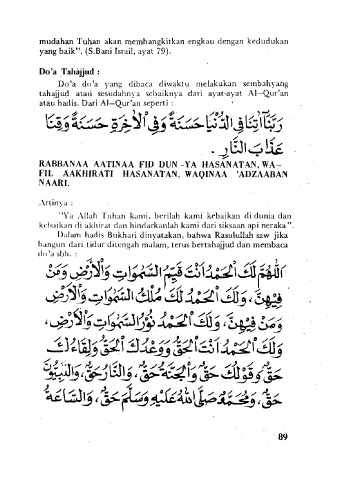 mudahan Tuhan akan membangkitkan engkau dengan kedudukan
yang baik". (S.Bani Israil, ayat 79).
Do'a Tahajjud :
Do'a do'a yang dibaca diwaktu melakukan sembahyang
tahajjud atau sesudahnya sebaiknya dari ayat-ayat Al—Qur'an
atau hadis. Dari Al—Qur'an seperti :
رَبَّنَا آتِنَا فِى الدُّنْيَا حَسَنَةً وَفِى الْأَخِرَةِ حَسَنَةً وَقِنَا
عَذَابَ النَّارِ .
RABBANAA AATINAA FID DUN -YA HASANATAN, WA—
FIL AAKHIRATI HASANATAN, WAQINAA 'ADZAABAN
NAARI.
Artinya :
"Ya Allah Tuhan kami, berilah kami kebaikan di dunia dan
kebaikan di akhirat dan hindarkanlah kami dari siksaan api neraka".
Dalam hadis Bukhari dinyatakan, bahwa Rasulullah saw jika
bangun dari tidur ditengah malam, terus bertahajjud dan membaca
do'a sbb. :
اَللّٰهُمَّ لَكَ الْحَمْدُ اَنْتَ قَيِّمُ السَّمٰوَاتِ وَالْأَرْضِ وَمَنْ
فِيْهِنَّ، وَلَكَ الْحَمْدُ لَكَ مُلْكُ السَّمٰوَاتِ وَالْأَرْضِ
وَمَنْ فِيْهِنَّ، وَلَكَ الْحَمْدُ نُوْرُ السَّمٰوَاتِ وَالْأَرْضِ،
وَلَكَ الْحَمْدُ اَنْتَ الْحَقُّ وَوَعْدُكَ الْحَقُّ وَلِقَاءُكَ
حَقٌّ وَقَوْلُكَ حَقٌّ وَالْجَنَّةُ حَقٌّ، وَالنَّارُ حَقٌّ، وَالنَّبِيُّوْنَ
حَقٌّ، وَمُحَمَّدٌ صَلَّى اللهُ عَلَيْهِ وَسَلَّمَ حَقٌّ، وَالسَّاعَةُ
89